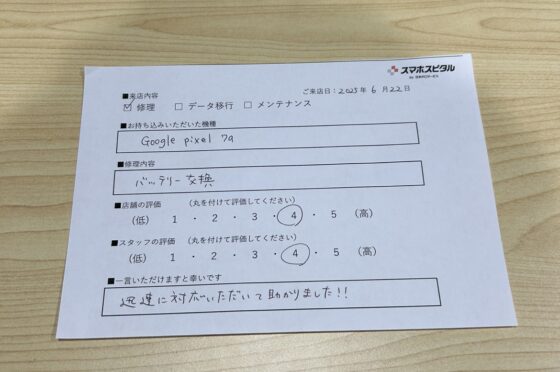 スマホスピタル
ご来店日：2025年 6月 22日
■来店内容
☑ 修理 □ データ移行 □ メンテナンス
■お持ち込みいただいた機種
Google pixel 7a
■修理内容
バッテリー交換
■店舗の評価 （丸を付けて評価してください）
（低） 1 ・ 2 ・ 3 ・ 4 ・ 5 （高）
■スタッフの評価 （丸を付けて評価してください）
（低） 1 ・ 2 ・ 3 ・ 4 ・ 5 （高）
■一言いただけますと幸いです
迅速に対応いただいて助かりました!!